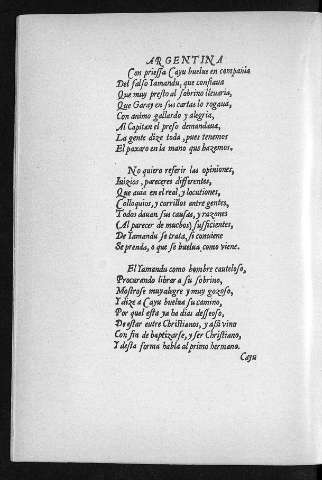 ARGENTINA
Con priessa Cayu buelue en compañia
Del falso Yamandu, que confiaua
Que muy presto al sobrino lleuaria,
Que Garay en sus cartas lo rogaua,
Con animo gallardo y alegria,
Al Capitan el preso demandaua,
La gente dize toda, pues tenemos
El paxaro en la mano que hazemos.
No quiero referir las opiniones,
Iuizios, pareceres differentes,
Que auia en el real, y locutiones,
Colloquios, y corrillos entre gentes,
Todos dauan sus causas, y razones
(Al parecer de muchos) sufficientes,
De Yamandu se trata, si conuiene
Se prenda, o que se buelua como viene.
El Yamandu como hombre cauteloso,
Procurando librar a su sobrino,
Mostrose muy alegre y muy gozoso,
Y dize a Cayu buelua su camino,
Por quel està ya ha dias desseoso,
De estar entre Christianos, y assi vino
Con fin de baptizarse, y ser Christiano,
Y desta forma habla al primo hermano.
Cayu